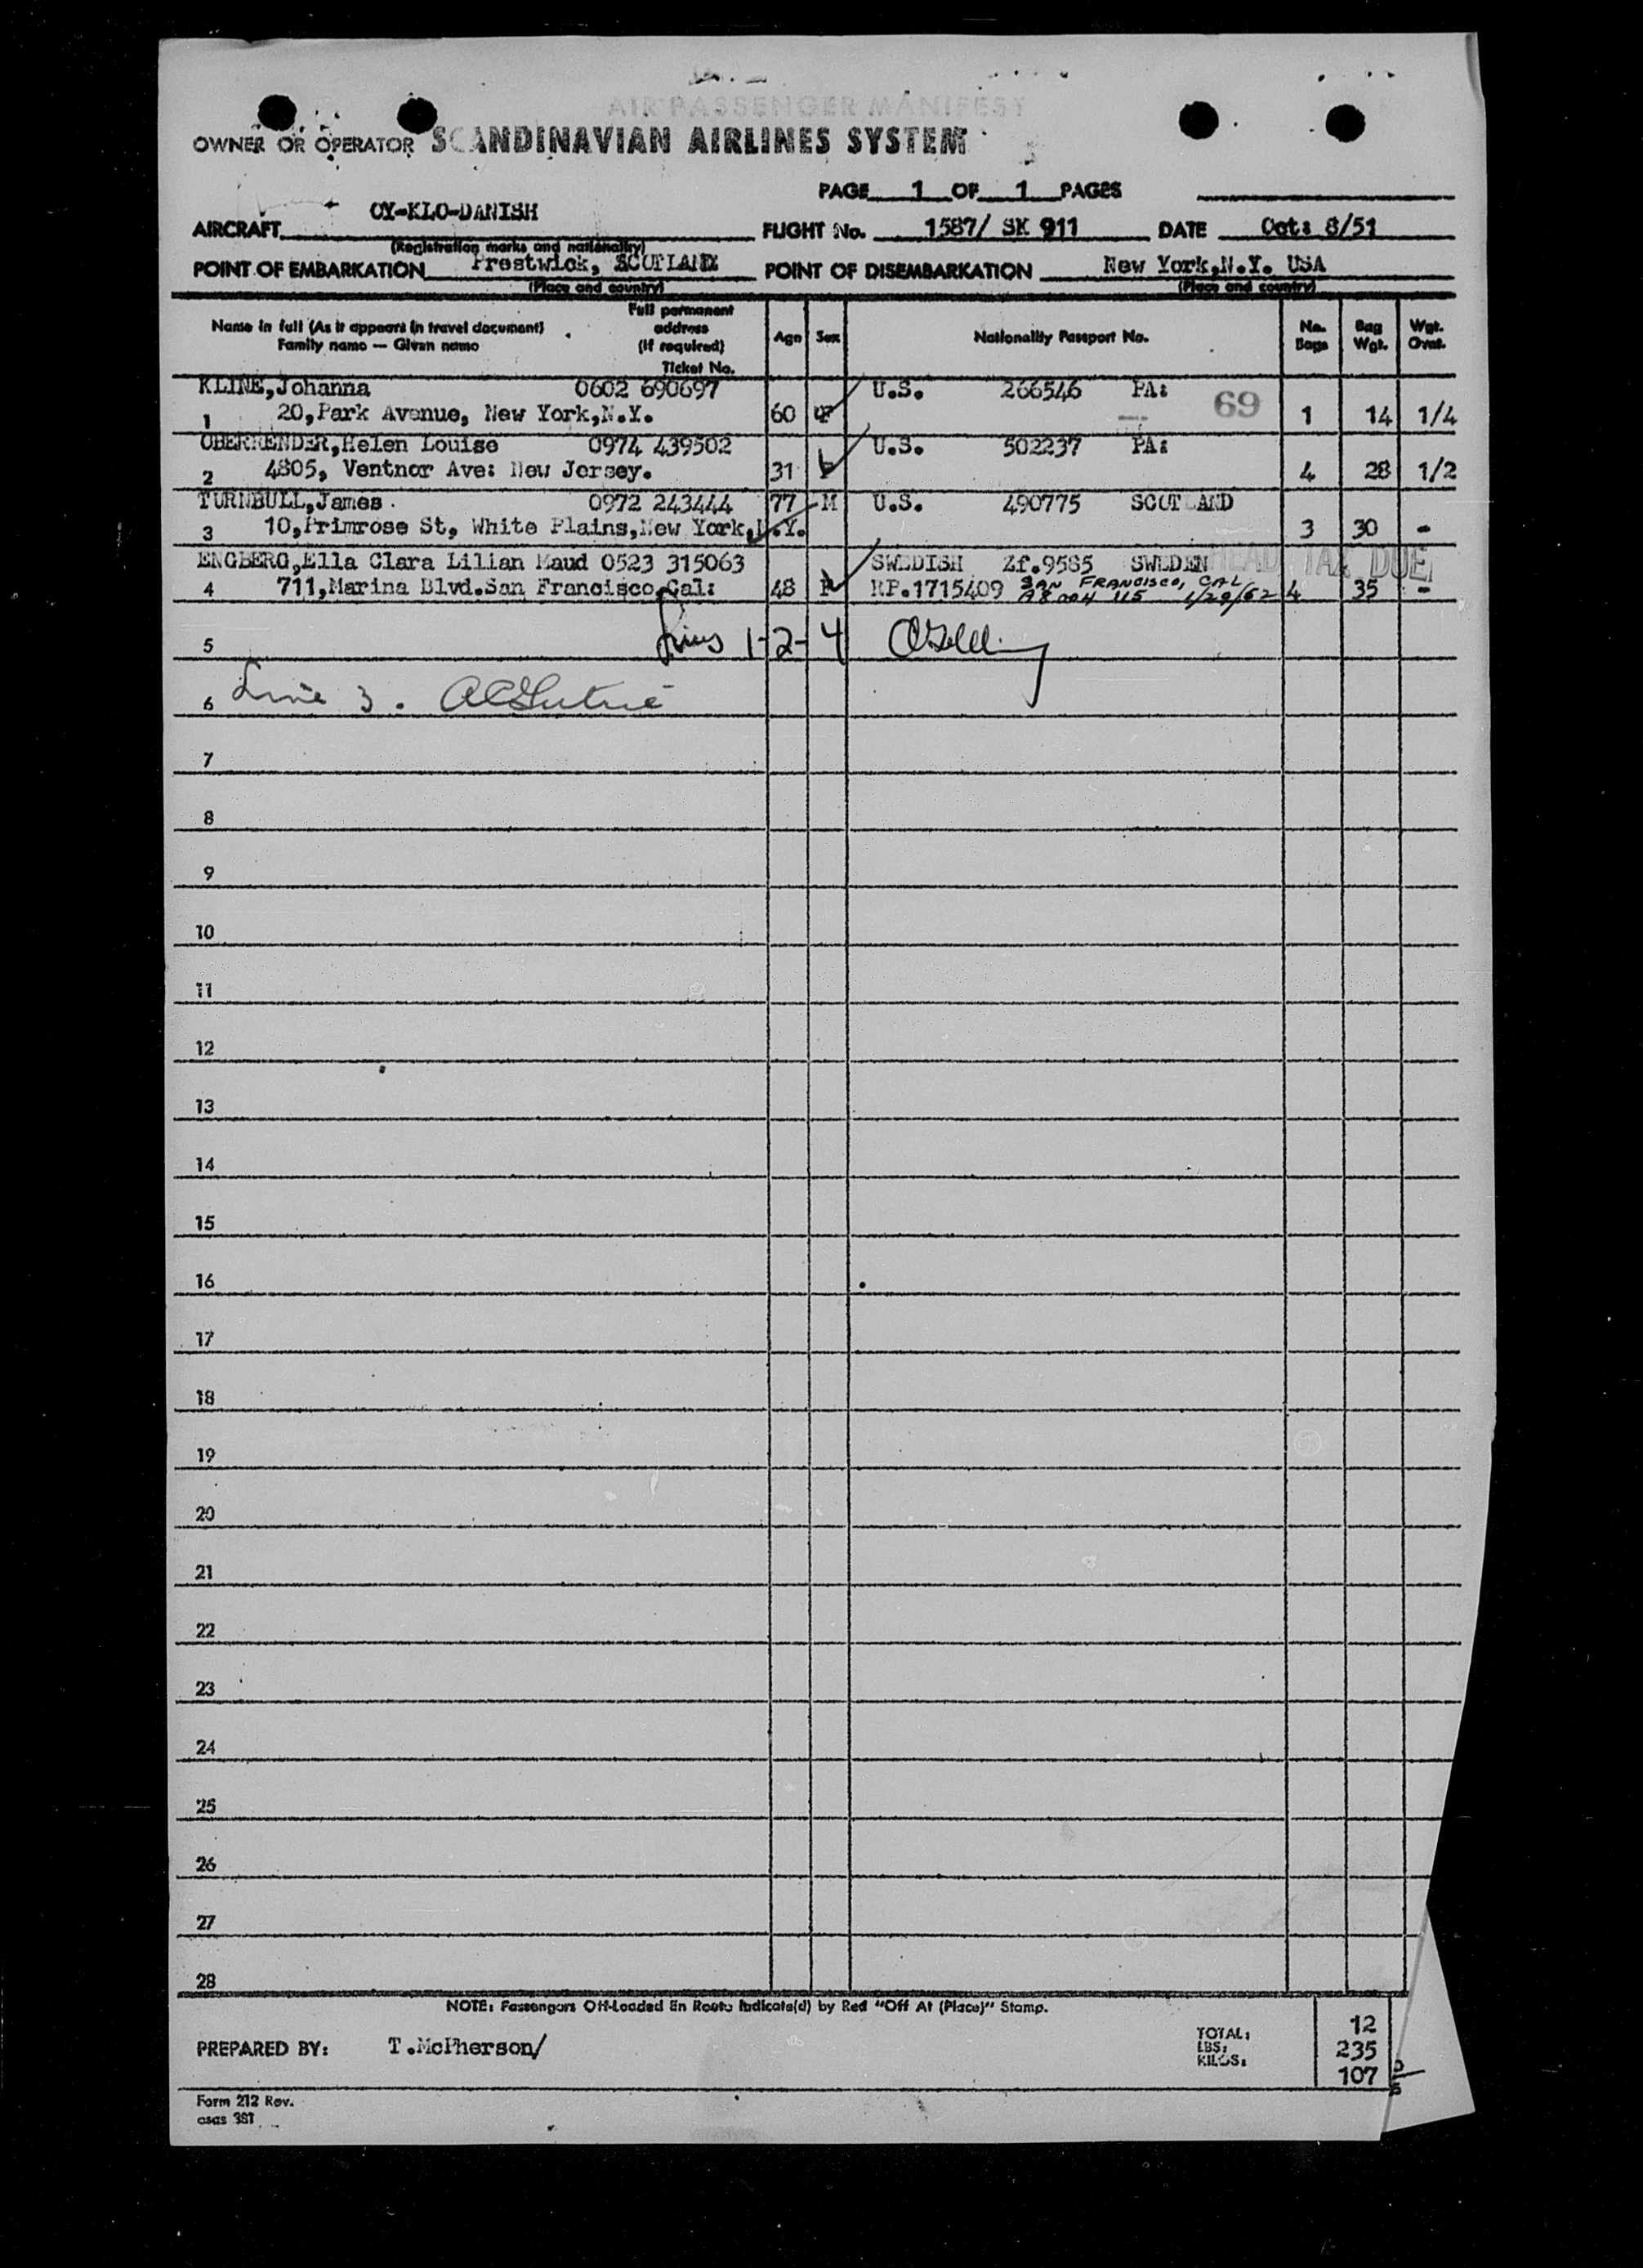 AIR PASSENGER MANIFEST
OWNER OR OPERATOR SCANDINAVIAN AIRLINES SYSTEM
PAGE 1 OF 1 PAGES
AIRCRAFT OY-KLO-DANISH FLIGHT No. 1587/ SK 911 DATE Oct: 8/51
(Registration marks and nationality)
POINT OF EMBARKATION Prestwick, SCOTLAND POINT OF DISEMBARKATION New York,N.Y. USA
(Place and country) (Place and country)
Name in full (As it appears in travel document) Family name — Given name Full permanent address (if required) Ticket No. Age Sex Nationality Passport No. No. Bags Bag Wgt. Wgt. Ovnt.
KLINE,Johanna 0602 690697 U.S. 266546 PA: 69
1 20,Park Avenue, New York,N.Y. 60 F 1 14 1/4
OBERRENDER,Helen Louise 0974 439502 U.S. 502237 PA:
2 4805, Ventnor Ave: New Jersey. 31 F 4 28 1/2
TURNBULL,James. 0972 243444 77 M U.S. 490775 SCOTLAND
3 10,Primrose St, White Plains,New York,N.Y. 3 30 -
ENGBERG,Ella Clara Lilian Maud 0523 315063 SWEDISH Zf.9585 SWEDEN HEAD TAX DUE
4 711,Marina Blvd.San Francisco,Cal: 48 F RP.1715409 SAN FRANCISCO, CAL 4 35 -
1/29/52
5 Lines 1-2-4
6 Line 3.
7
8
9
10
11
12
13
14
15
16
17
18
19
20
21
22
23
24
25
26
27
28
NOTE: Passengers Off-Loaded En Route Indicate(d) by Red "Off At (Place)" Stamp.
PREPARED BY: T.McPherson/
TOTAL: 12
LBS: 235
KILOS: 107
Form 212 Rev.